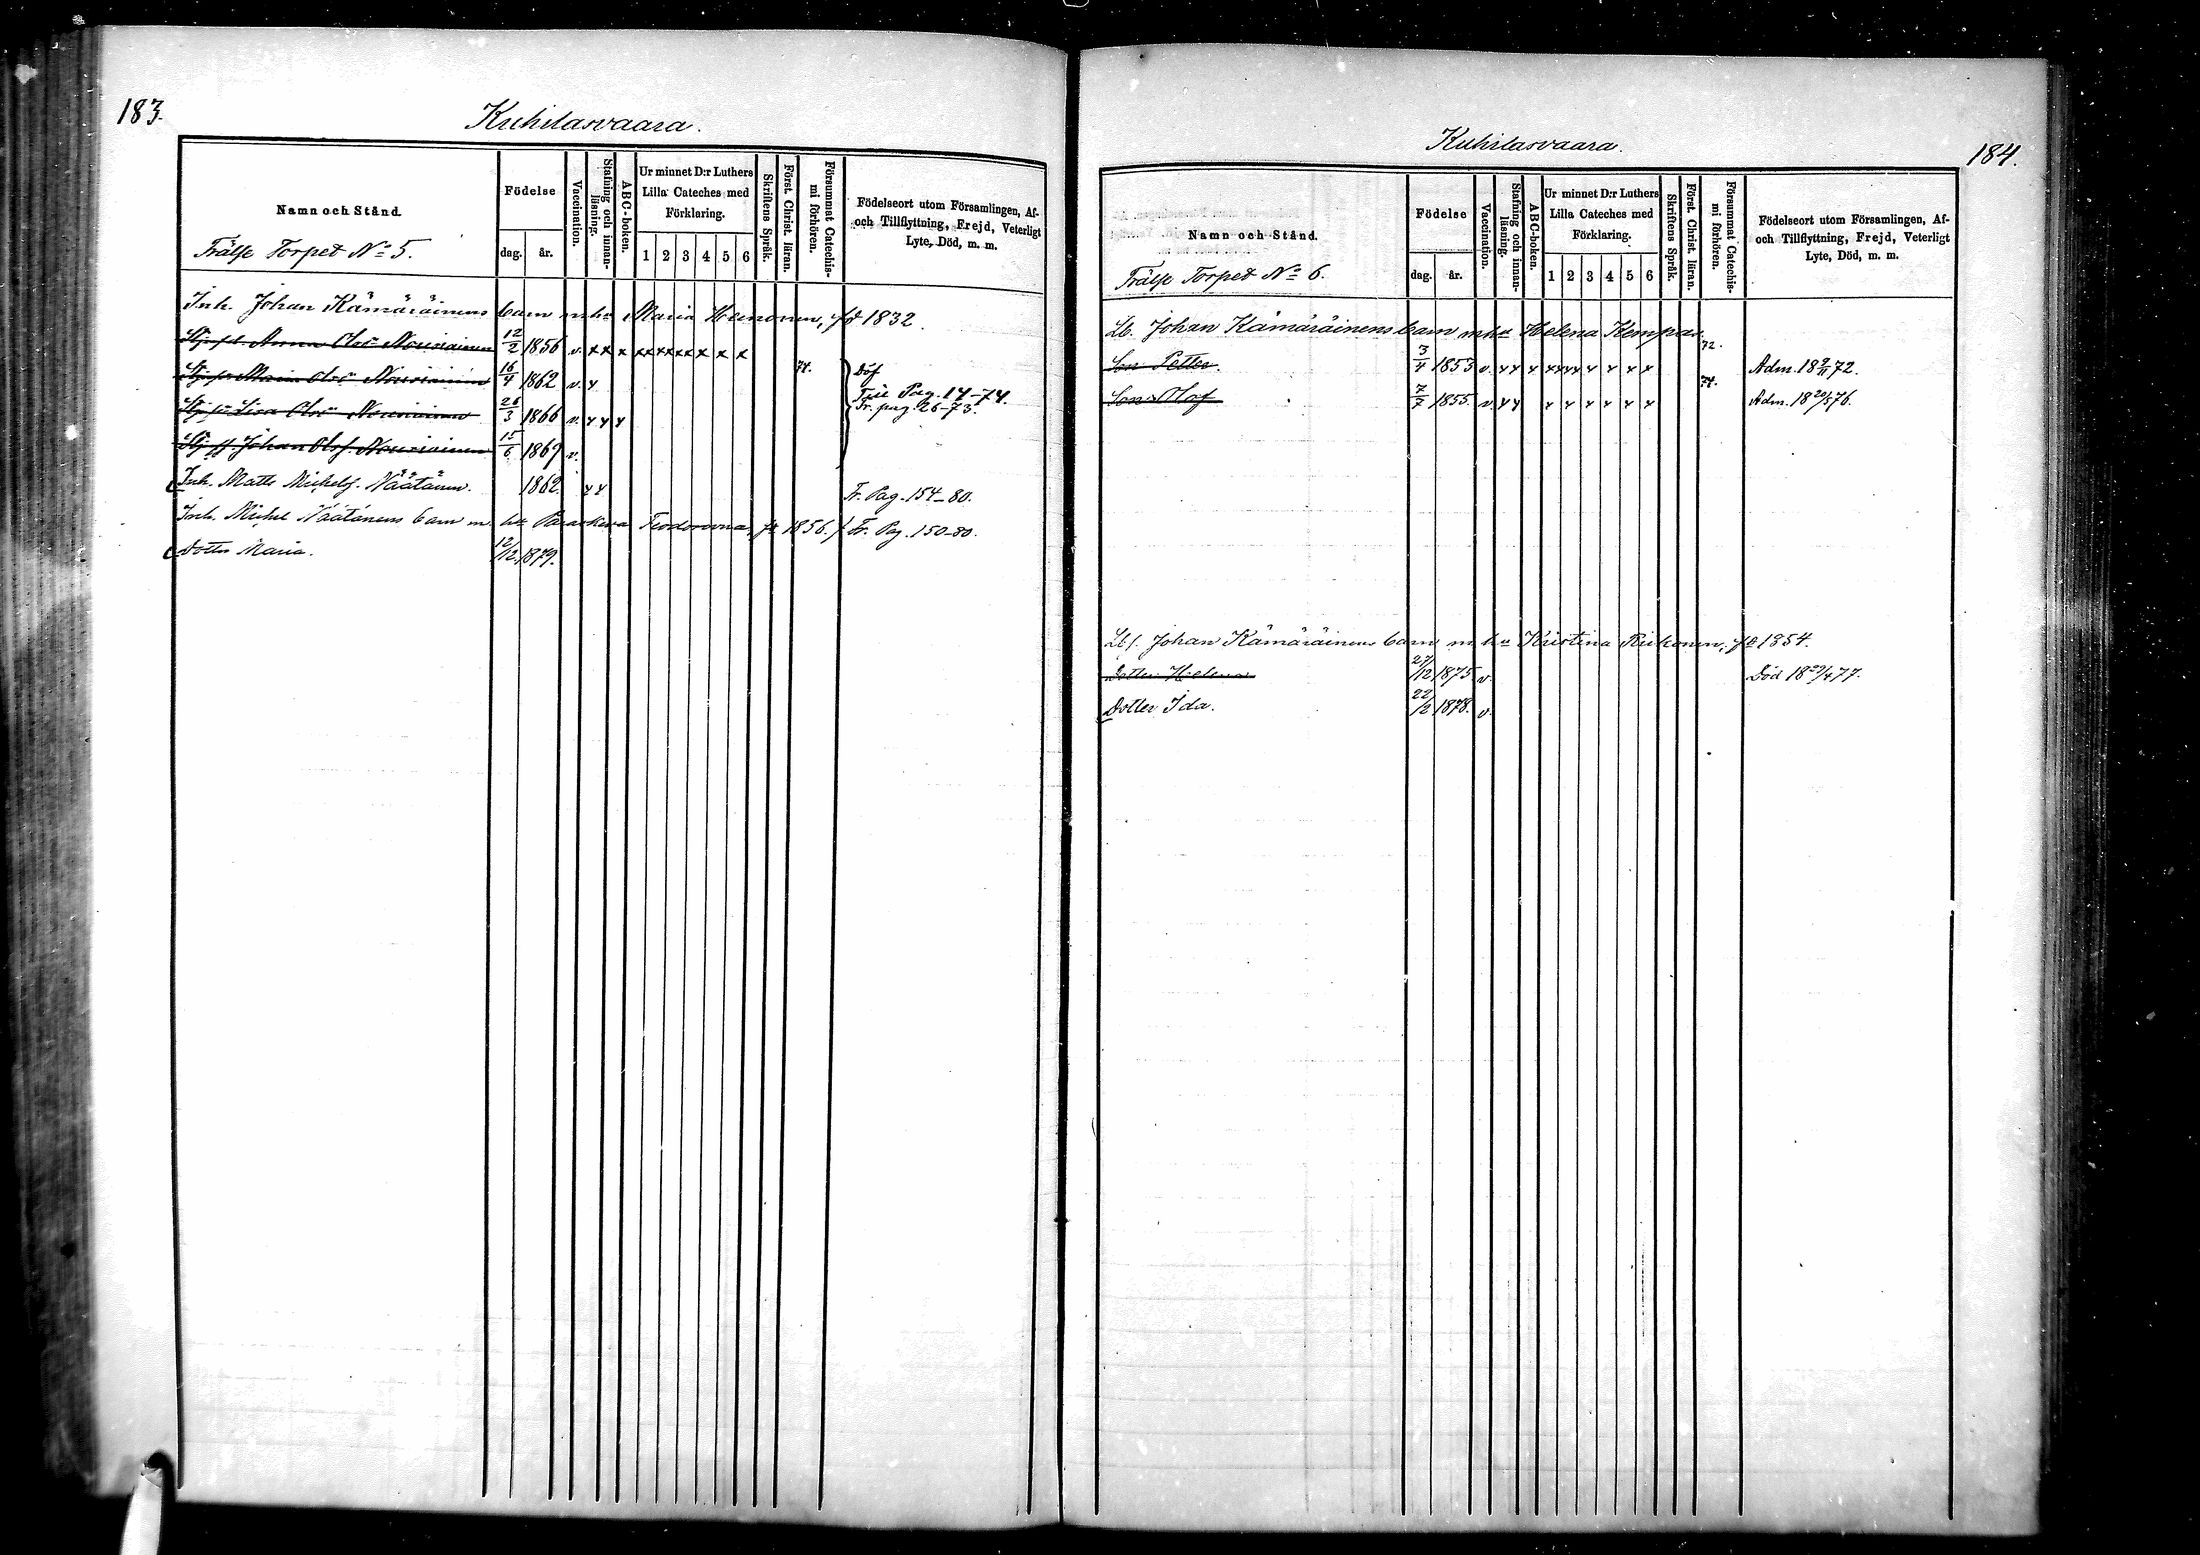 183.
Kuhilasvaara.
Namn och Stånd.
Födelse
dag. år.
Vaccination.
Stafning och innanläsning.
ABC-boken.
Ur minnet D:r Luthers
Lilla Cateches med
Förklaring.
1 2 3 4 5 6
Skriftens Språk.
Först. Christ. läran.
Försummat Catechismi förhören.
Födelseort utom Församlingen, Af-
och Tillflyttning, Frejd, Veterligt
Lyte, Död, m. m.
Frälse Torpet No 5.
Inh. Johan Kämäräinens barn m. ha Maria Hu, fd 1832.
Anna Olsd. Nousiainen 12/2 1856 v. x x x x x x x x x x x x
Maria Olsd. Nousiainen 16/4 1862 v. x 74. Döf
Pag. 17-74.
Lisa Olsd. Nousiainen 26/3 1866 v. x x x Fr. pag. 26-73.
Johan Olsf. Nousiainen 15/6 1869 v.
Inh. Matts Michelsf. Näätänen. 1862. x x Fr. Pag. 154-80.
Inh. Michel Näätänens barn m. ha Paraskeva Feodorovna, fd 1856. Fr. Pag. 150-80.
Dotter Maria. 12/12 1879.
184.
Kuhilasvaara.
Namn och Stånd.
Födelse
dag. år.
Vaccination.
Stafning och innanläsning.
ABC-boken.
Ur minnet D:r Luthers
Lilla Cateches med
Förklaring.
1 2 3 4 5 6
Skriftens Språk.
Först. Christ. läran.
Försummat Catechismi förhören.
Födelseort utom Församlingen, Af-
och Tillflyttning, Frejd, Veterligt
Lyte, Död, m. m.
Frälse Torpet No 6.
Lb. Johan Kämäräinens barn m ha Helena Kemppar.
Son Petter. 3/4 1853 v. x x x x x x x x x x x 72. Adm. 18 9/11 72.
Son Olof 7/7 1855. v. x x x x x x x x 74. Adm. 18 20/5 76.
Lbf. Johan Kämäräinens barn m. ha Kristina Riikonen, fd 1854.
Dotter Helena 27/12 1875 v. Död 18 29/4 77.
Dotter Ida. 22/2 1878. v.